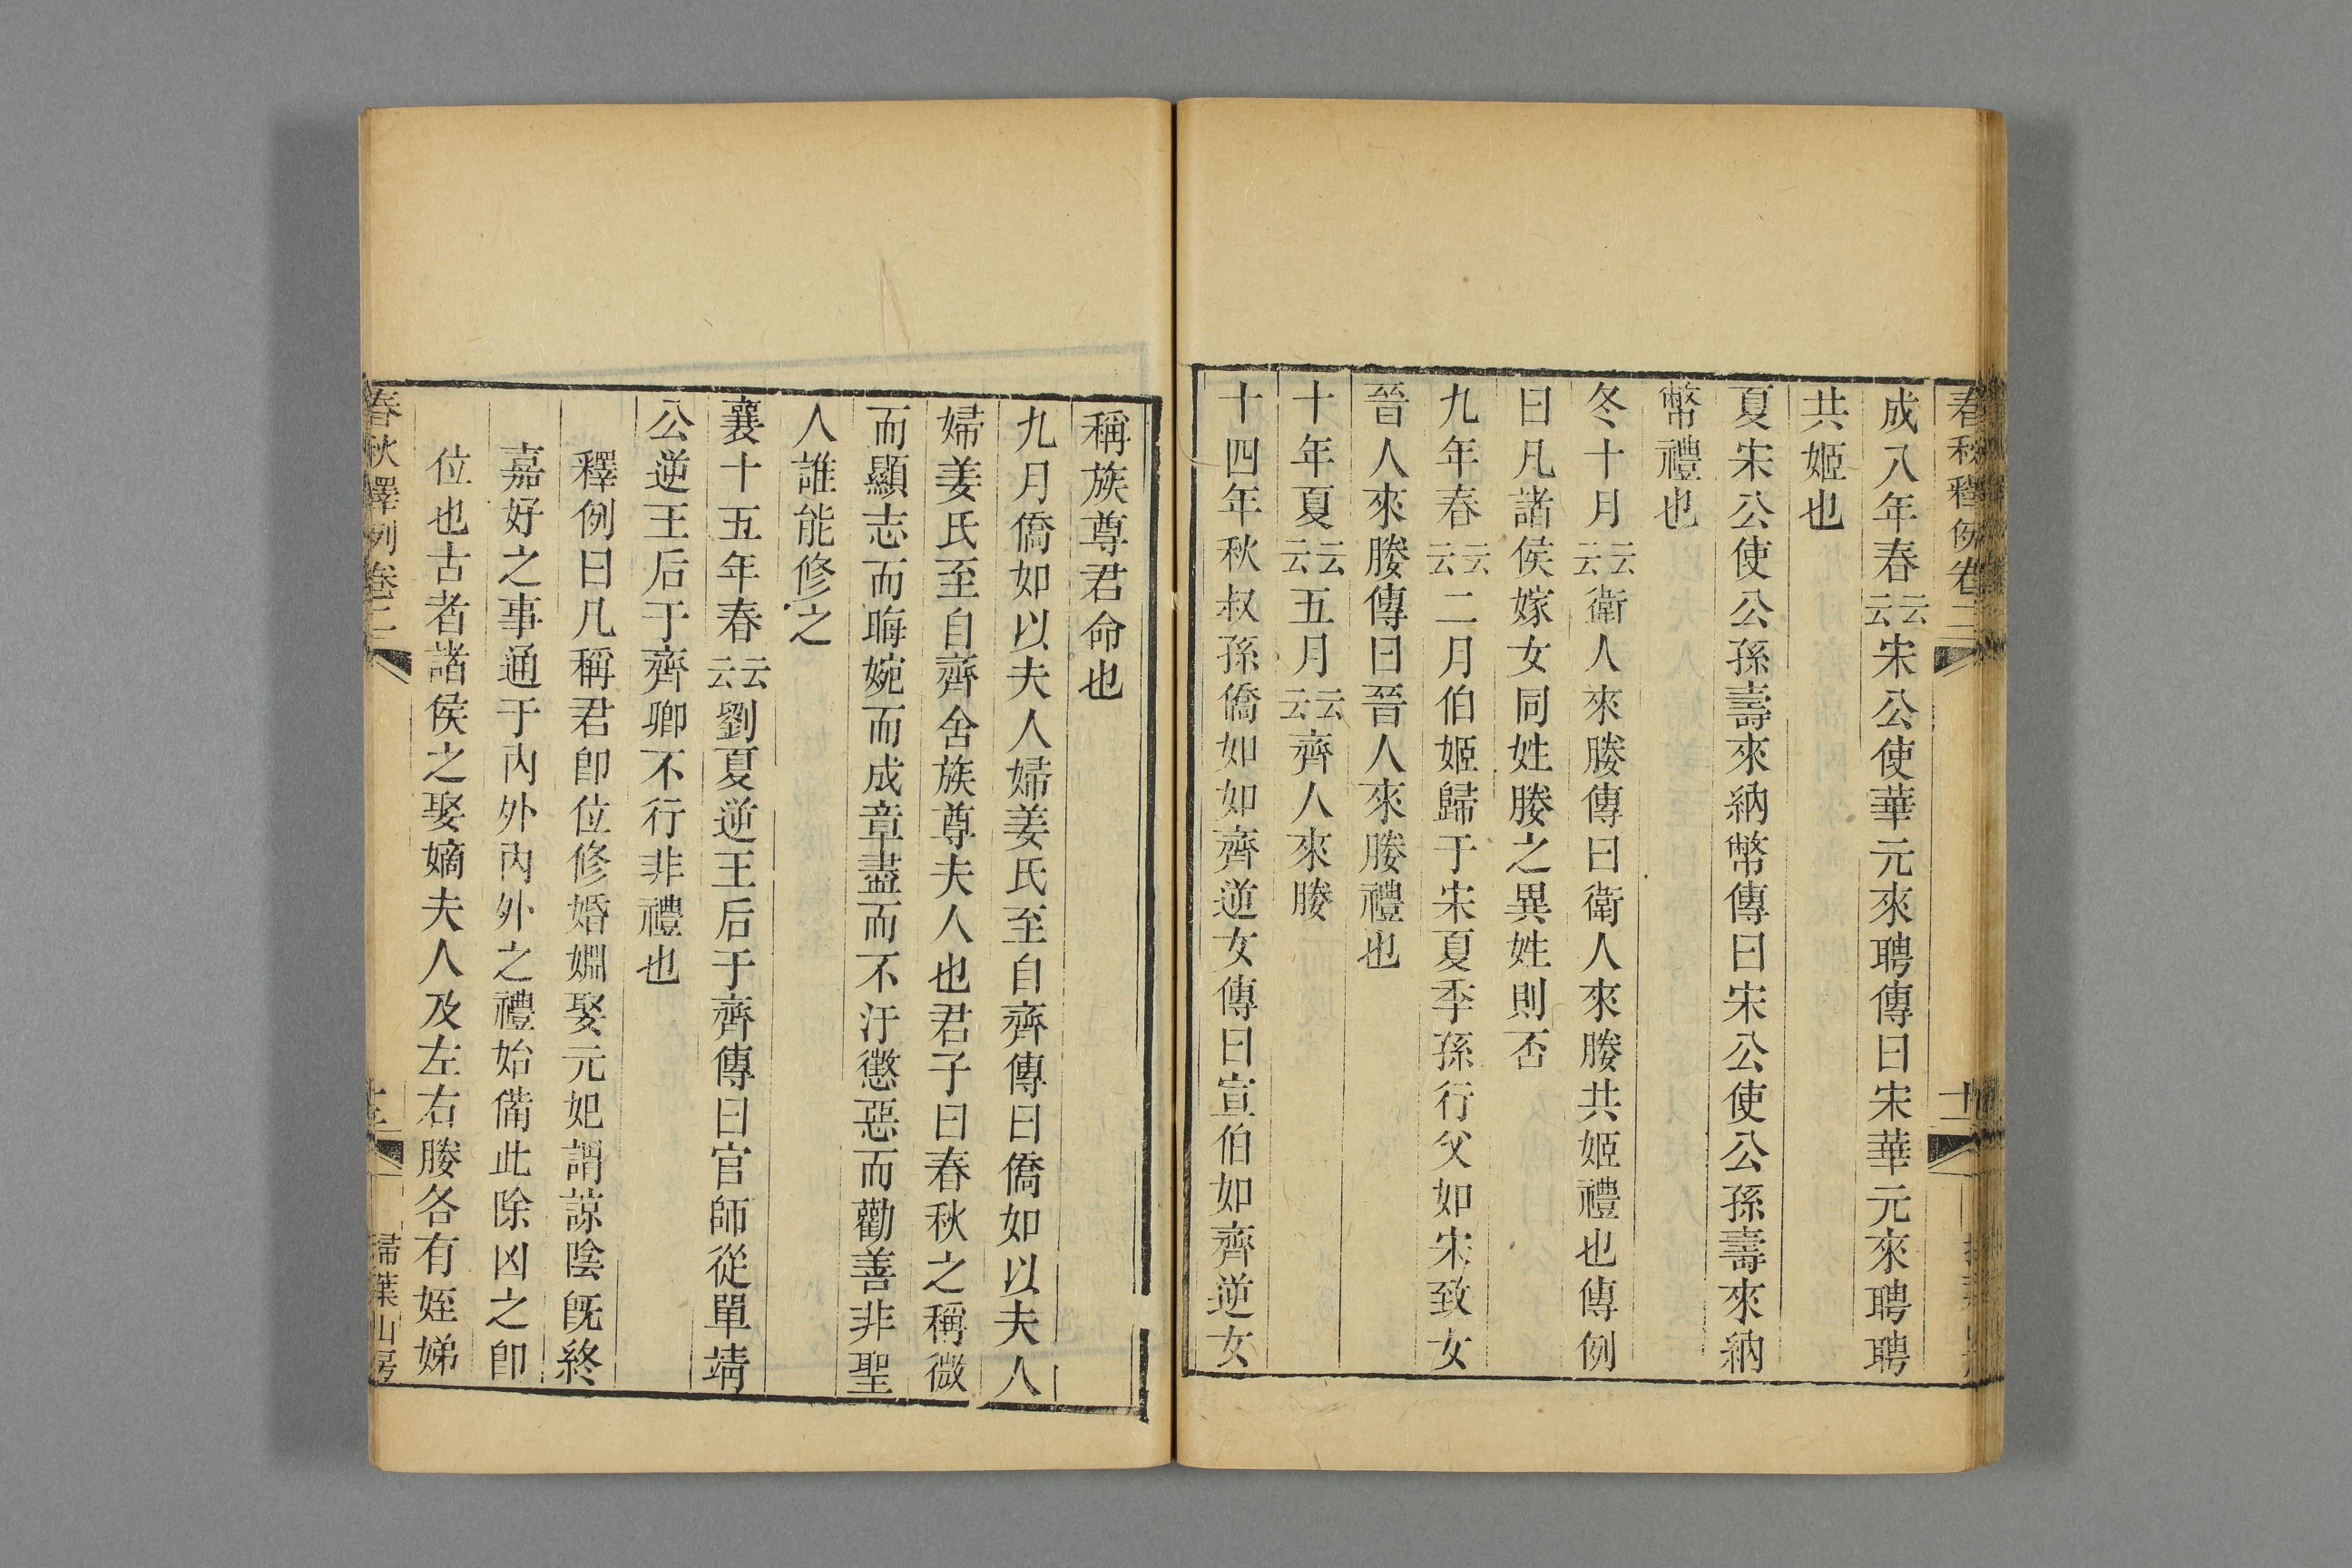 春秋釋例卷二
成八年春云云宋公使華元來聘傳曰宋華元來聘聘
共姬也
夏宋公使公孫壽來納幣傳曰宋公使公孫壽來納
幣禮也
冬十月云云衛人來媵傳曰衛人來媵共姬禮也傳例
曰凡諸侯嫁女同姓媵之異姓則否
九年春云云二月伯姬歸于宋夏季孫行父如宋致女
晉人來媵傳曰晉人來媵禮也
十年夏云云五月云云齊人來媵
十四年秋叔孫僑如如齊逆女傳曰宣伯如齊逆女
稱族尊君命也
九月僑如以夫人婦姜氏至自齊傳曰僑如以夫人
婦姜氏至自齊舍族尊夫人也君子曰春秋之稱微
而顯志而晦婉而成章盡而不汙懲惡而勸善非聖
人誰能修之
襄十五年春云云劉夏逆王后于齊傳曰官師從單靖
公逆王后于齊卿不行非禮也
釋例曰凡稱君卽位修婚婣娶元妃謂諒陰旣終
嘉好之事通于內外內外之禮始備此除凶之卽
位也古者諸侯之娶嫡夫人及左右媵各有姪娣
春秋釋例卷二
掃葉山房